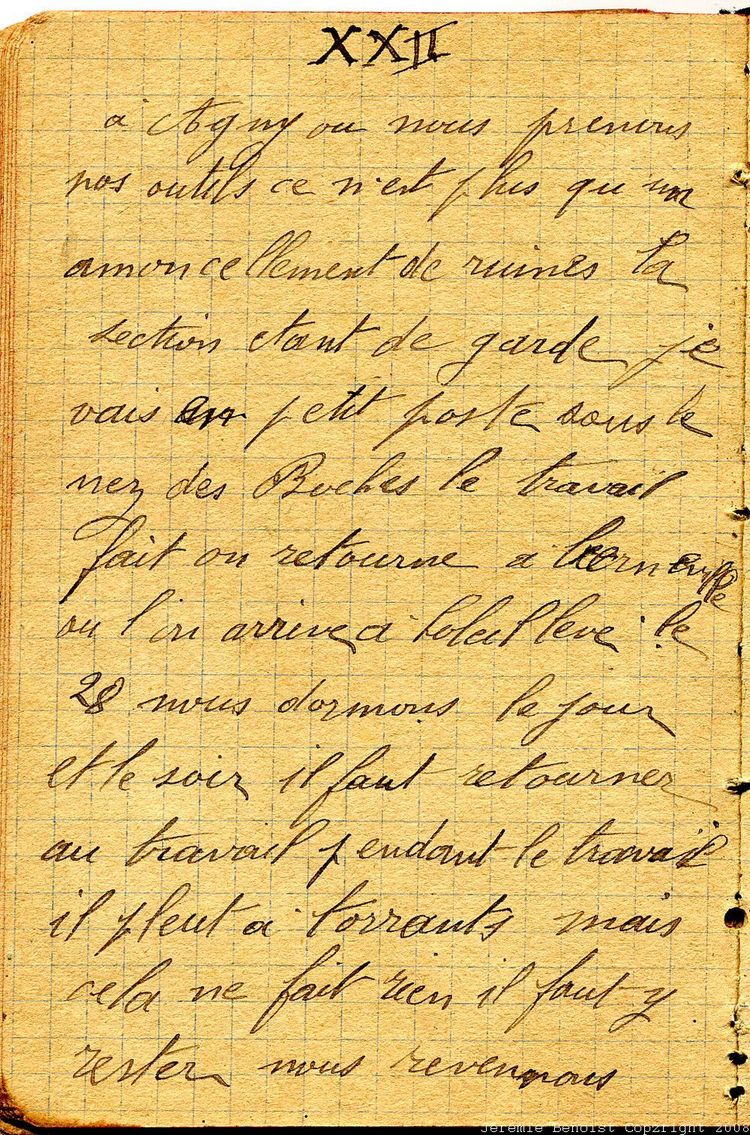 XXII
a Agny ou nous prenons
nos outils ce n'est plus qu un
amoncellement de ruines la
section etant de garde je
vais en petit poste sous le
nez des Boches le travail
fait on retourne a
ou l'on arrive a soleil levé le
28 nous dormons le jour
et le soir il faut retourner
au travail pendant le travail
il pleut a torrants mais
cela ne fait rien il faut y
rester nous revennons
Jeremie Benoist Cop2right 2008